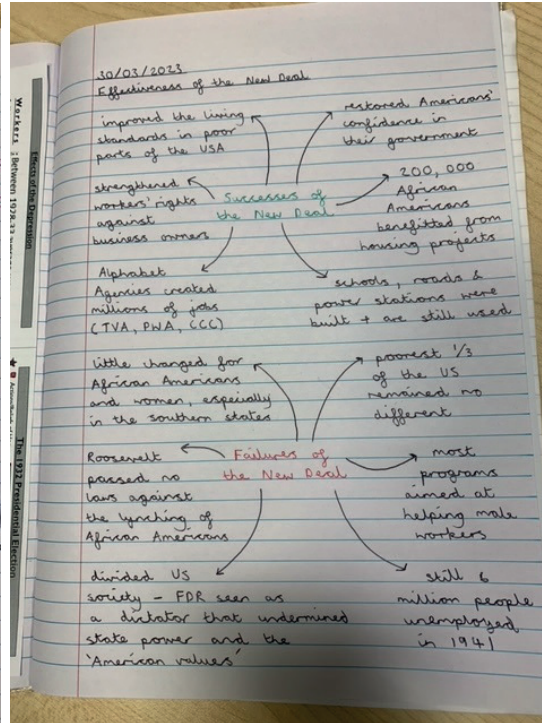 30/03/2023
Effectiveness of the New Deal
improved the living
standards in poor
parts of the USA
restored Americans'
confidence in
their government
strengthened
workers' rights
against
business owners
Successes of
the New Deal
200,000
African
Americans
benefitted from
housing projects
Alphabet
Agencies created
millions of jobs
(TVA, PWA, CCC)
schools, roads &
power stations were
built + are still used
little changed for
African Americans
and women, especially
in the southern states
poorest 1/3
of the US
remained no
different
Roosevelt
passed no
laws against
the lynching of
African Americans
Failures of
the New Deal
most
programs
aimed at
helping male
workers
divided US
society - FDR seen as
a dictator that undermined
state power and the
'American values'
still 6
million people
unemployed
in 1941
Effects of the Depression
Workers : Between 1928-33
The 1932 Presidential Election